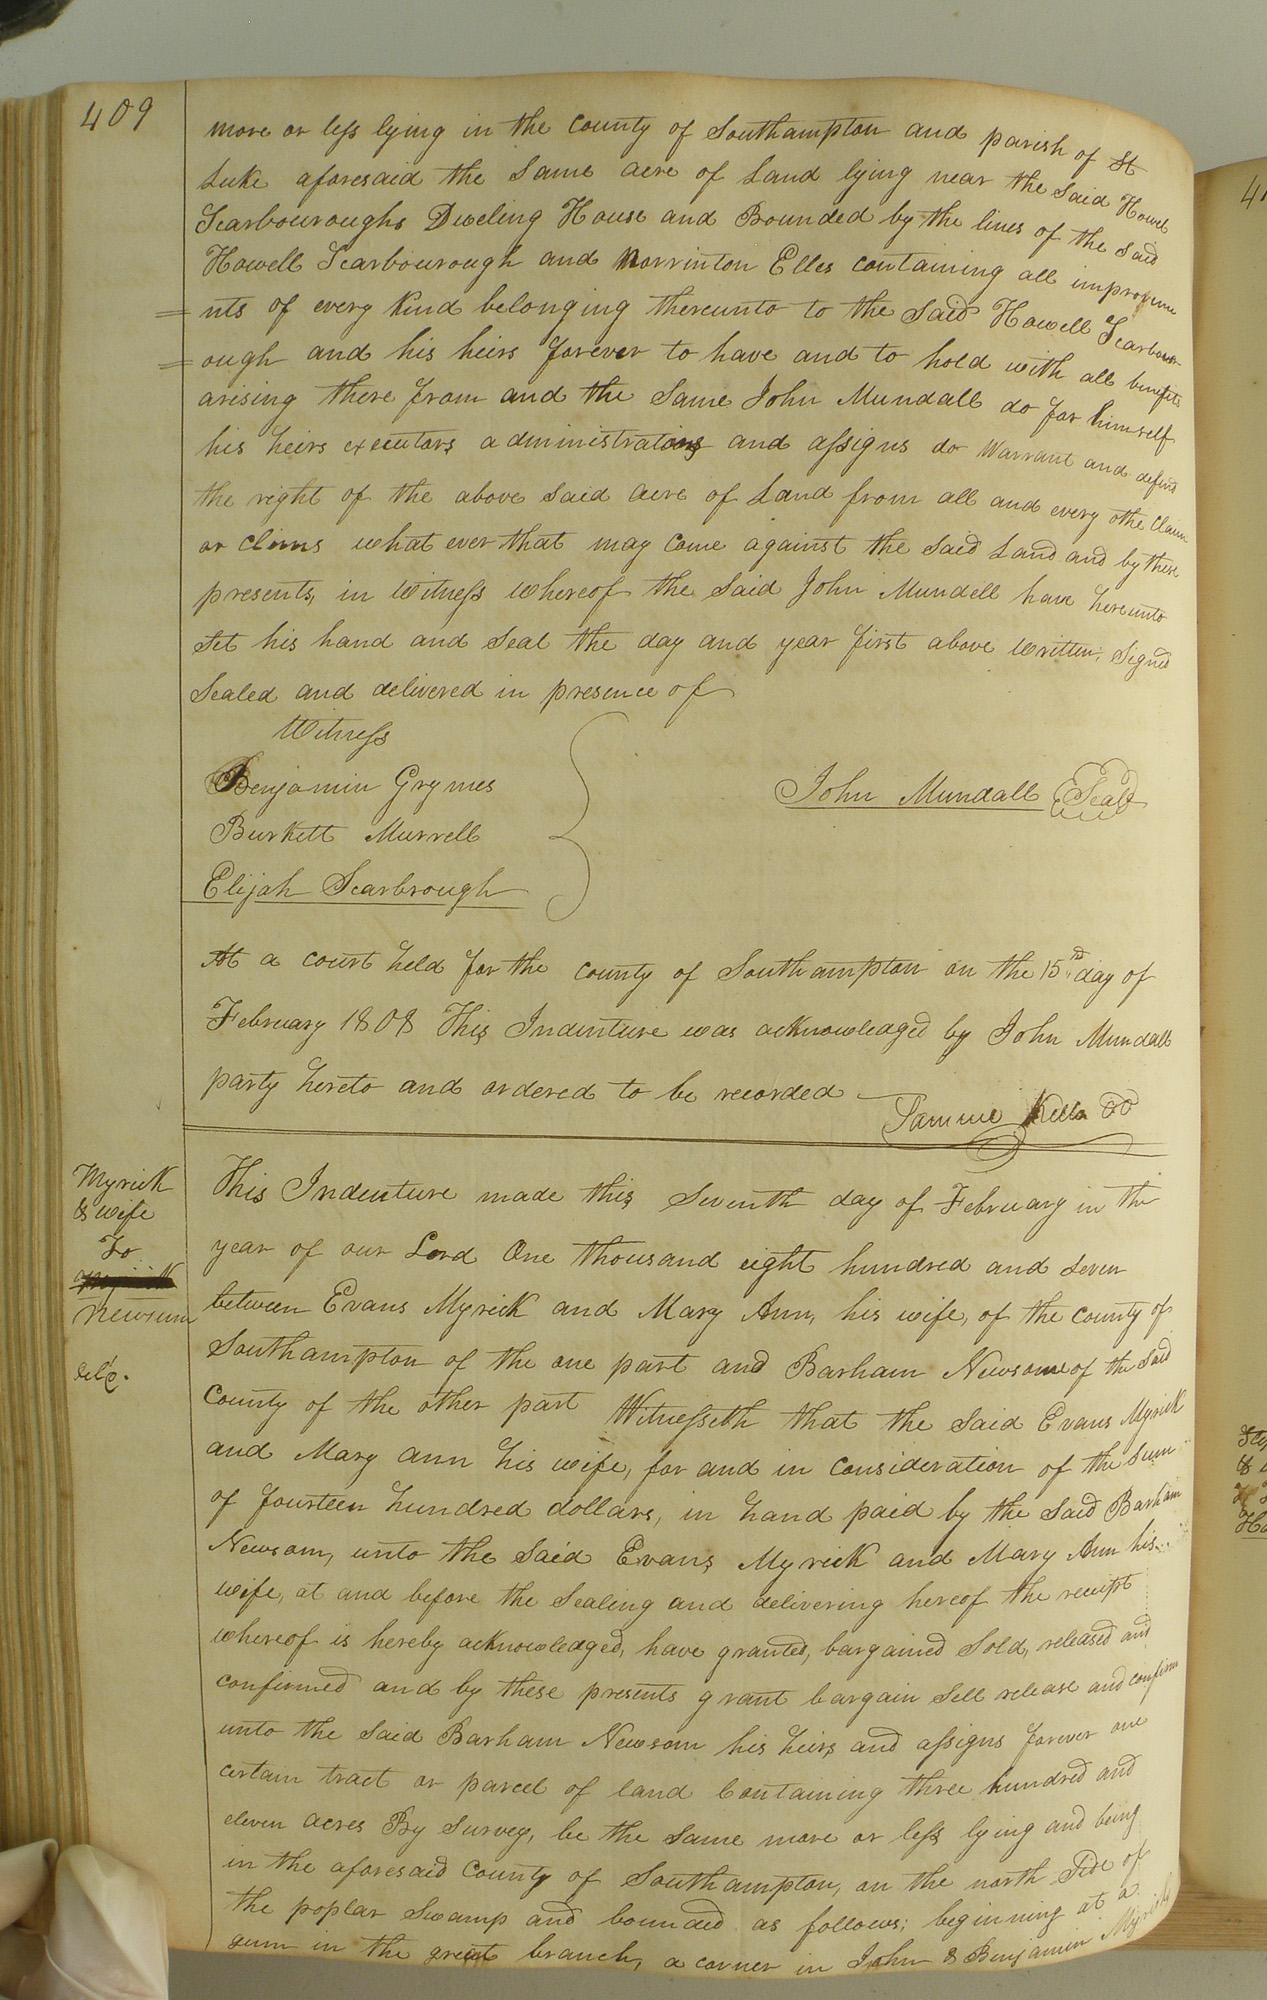 409
more or less lying in the County of Southampton and parish of St
Luke aforesaid the Same acre of Land lying near the Said Howel
Scarbouroughs Dweling House and Bounded by the lines of the Said
Howell Scarbourough and Norrinton Elles containing all improveme
=nts of every Kind belonging thereunto to the Said Howell Scarbour
=ough and his heirs forever to have and to hold with all benefits
arising there from and the Same John Mundall do for himself
his heirs executors administrators and assigns do Warrant and defend
the right of the above Said acre of Land from all and every othe claim
or clims what ever that may Come against the Said Land and by these
presents, in Witness whereof the Said John Mundell have hereunto
Set his hand and Seal the day and year first above Written, Signed
Sealed and delivered in presence of
Witness
Benjamin Grymes
Burkett Murrell
Elijah Scarbrough
John Mundall Seal
At a court held for the County of Southampton on the 15th day of
February 1808 This Indenture was acknowledged by John Mundall
party hereto and ordered to be recorded
Samuel Kello CC
Myrick
& wife
To
Newsum
del'd.
This Indenture made this Seventh day of February in the
year of our Lord One thousand eight hundred and seven
between Evans Myrick and Mary Ann, his wife, of the County of
Southampton of the one part and Barham Newsome of the Said
County of the other part Witnesseth that the Said Evans Myrick
and Mary ann his wife, for and in Consideration of the Sum
of fourteen hundred dollars, in hand paid by the Said Barham
Newsom, unto the Said Evans Myrick and Mary Ann his
wife, at and before the Sealing and delivering hereof the receipt
whereof is hereby acknowledged, have granted, bargained Sold, released and
confirmed and by these presents grant bargain Sell release and confirm
unto the Said Barham Newsom his heirs and assigns forever one
certain tract or parcel of land Containing three hundred and
eleven acres By Survey, be the Same more or less lying and being
in the aforesaid County of Southampton, on the north Side of
the poplar Swamp and bounded as follows; beginning at a
gum in the great branch, a corner in John & Benjamin Myricks